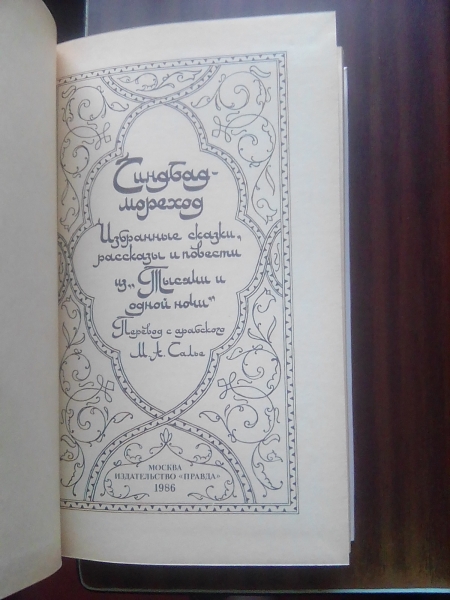 Синдбад-
мореход
Избранные сказки,
рассказы и повести
из „Тысячи и
одной ночи"
Перевод с арабского
М. А. Салье
МОСКВА
ИЗДАТЕЛЬСТВО «ПРАВДА»
1986